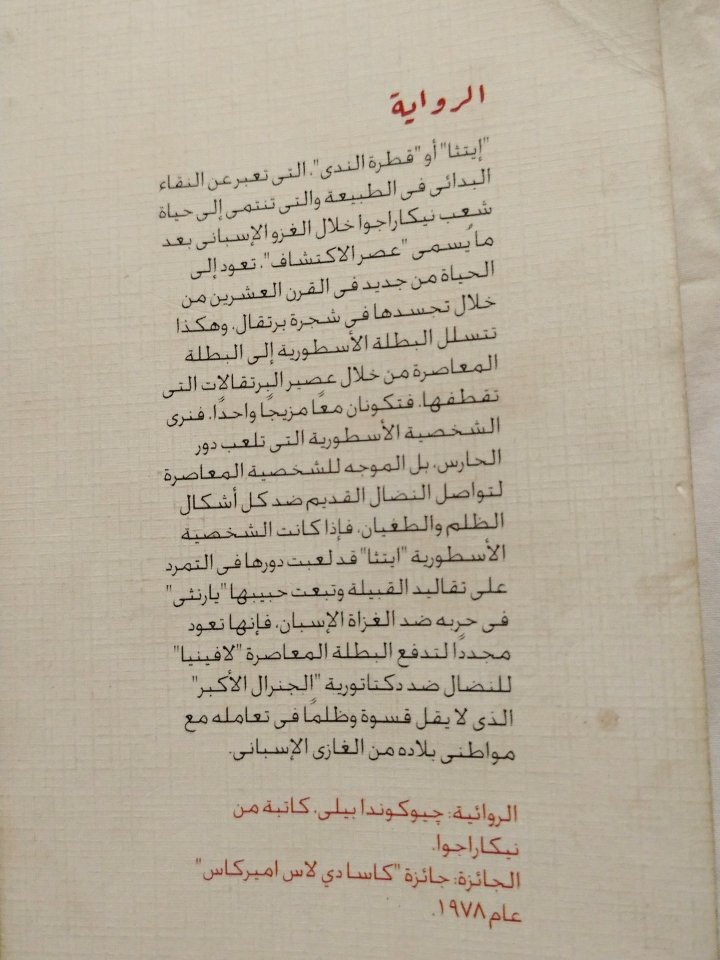 الرواية
"إيتثا" أو "قطرة الندى"، التى تعبر عن النقاء
البدائى فى الطبيعة والتى تنتمى إلى حياة
شعب نيكاراجوا خلال الغزو الإسبانى بعد
ما يُسمى "عصر الاكتشاف"، تعود إلى
الحياة من جديد فى القرن العشرين من
خلال تجسدها فى شجرة برتقال، وهكذا
تتسلل البطلة الأسطورية إلى البطلة
المعاصرة من خلال عصير البرتقالات التى
تقطفها، فتكونان معًا مزيجًا واحدًا، فنرى
الشخصية الأسطورية التى تلعب دور
الحارس، بل الموجه للشخصية المعاصرة
لتواصل النضال القديم ضد كل أشكال
الظلم والطغيان، فإذا كانت الشخصية
الأسطورية "ايتثا" قد لعبت دورها فى التمرد
على تقاليد القبيلة وتبعت حبيبها "يارنثى"
فى حربه ضد الغزاة الإسبان، فإنها تعود
مجددًا لتدفع البطلة المعاصرة "لافينيا"
للنضال ضد دكتاتورية "الجنرال الأكبر"
الذى لا يقل قسوة وظلمًا فى تعامله مع
مواطنى بلاده من الغازى الإسبانى.
الروائية: چيوكوندا بيلى، كاتبة من
نيكاراجوا.
الجائزة: جائزة "كاسا دي لاس اميركاس"
عام ١٩٧٨.